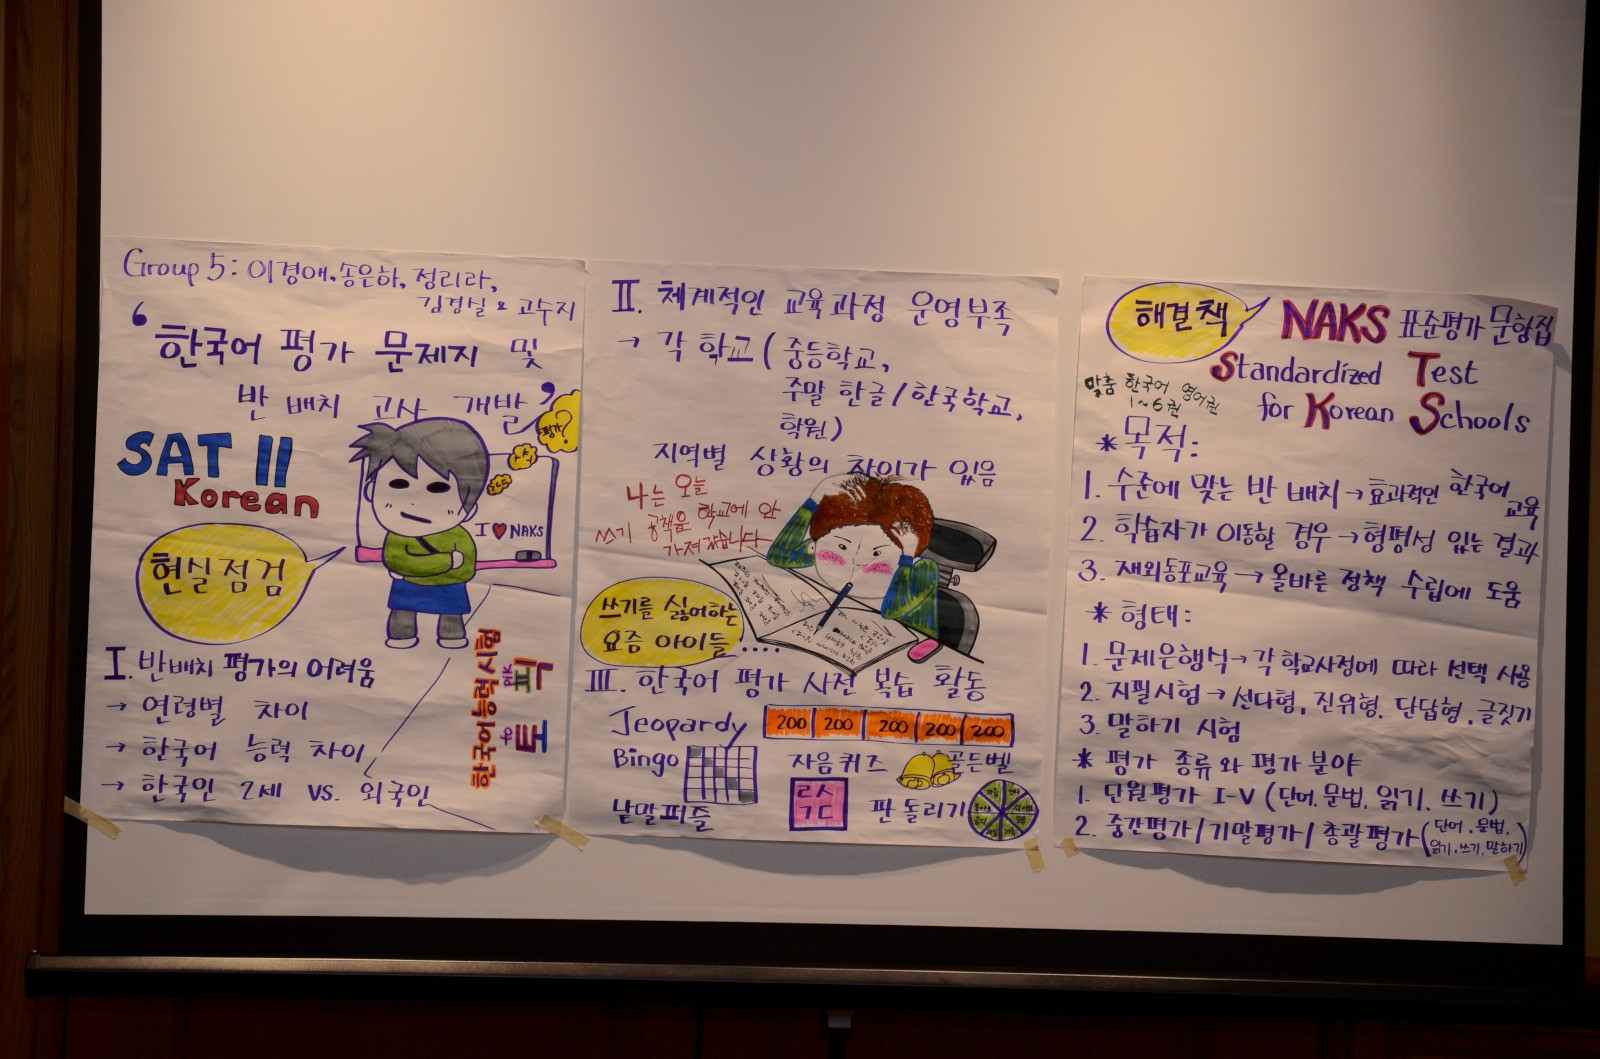 Group 5: 이경애, 송은하, 정리라,
김경실 & 고수지
'한국어 평가 문제지 및
반 배치 고사 개발'
SAT II
Korean
평가?
I ♥ NAKS
현실점검
I. 반배치 평가의 어려움
→ 연령별 차이
→ 한국어 능력 차이
→ 한국인 2세 vs. 외국인
한국어능력시험
토픽
II. 체계적인 교육과정 운영부족
→ 각 학교 (중등학교,
주말 한글/한국학교,
학원)
지역별 상황의 차이가 있음
나는 오늘
쓰기 공책을 학교에 안
가져갔습니다
쓰기를 싫어하는
요즘 아이들....
III. 한국어 평가 사전 복습 활동
Jeopardy 200 200 200 200 200
Bingo 자음퀴즈 골든벨
낱말퍼즐 ㄹㅅ 판 돌리기
ㄱㄷ
해결책 NAKS 표준평가 문항집
Standardized Test
for Korean Schools
맞춤 한국어 영어권
1~6권
* 목적:
1. 수준에 맞는 반 배치 → 효과적인 한국어 교육
2. 학습자가 이동할 경우 → 형평성 있는 결과
3. 재외동포교육 → 올바른 정책 수립에 도움
* 형태:
1. 문제은행식 → 각 학교사정에 따라 선택 사용
2. 지필시험 → 선다형, 진위형, 단답형, 글짓기
3. 말하기 시험
* 평가 종류와 평가 분야
1. 단원평가 I-V (단어, 문법, 읽기, 쓰기)
2. 중간평가/기말평가/총괄평가 (단어, 문법,
읽기, 쓰기, 말하기)